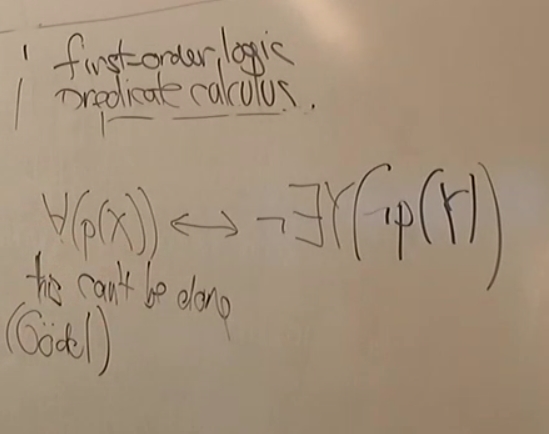 first-order logic
predicate calculus.
∀(p(x)) ↔ ¬∃Y(¬p(Y))
this can't be done
(Gödel)